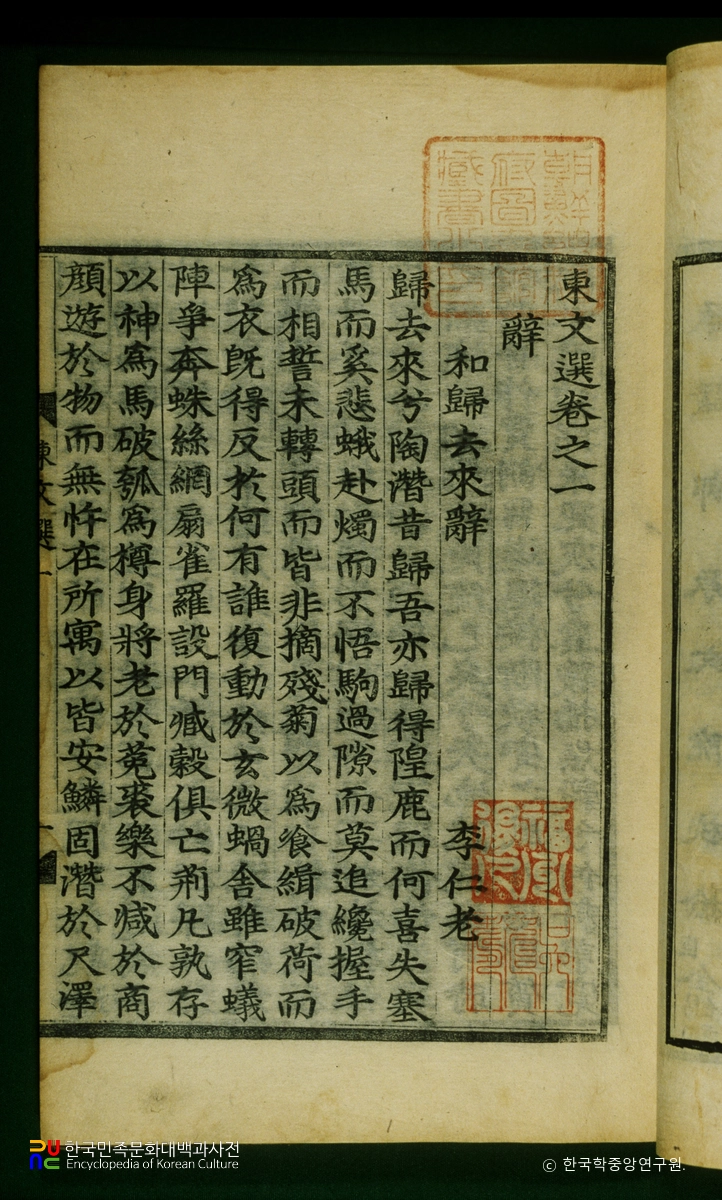 東文選卷之一
辭
和歸去來辭 李仁老
歸去來兮陶潛昔歸吾亦歸得隍鹿而何喜失塞
馬而奚悲蛾赴燭而不悟駒過隙而莫追纔握手
而相誓未轉頭而皆非摘殘菊以爲飡緝破荷而
爲衣旣得反於何有誰復動於玄微蝸舍雖窄蟻
陣爭奔蛛絲網扇雀羅設門臧穀俱亡荊凡孰存
以神爲馬破瓠爲樽身將老於菟裘樂不減於商
顔遊於物而無忤在所寓以皆安鱗固潛於尺澤
東文選一
한국민족문화대백과사전
Encyclopedia of Korean Culture
© 한국학중앙연구원.